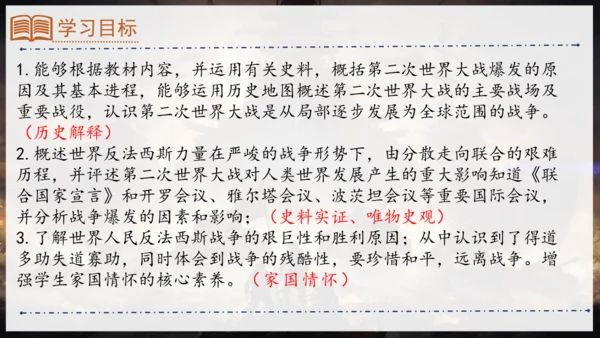 学习目标
1. 能够根据教材内容，并运用有关史料，概括第二次世界大战爆发的原
因及其基本进程，能够运用历史地图概述第二次世界大战的主要战场及
重要战役，认识第二次世界大战是从局部逐步发展为全球范围的战争。
（历史解释）
2. 概述世界反法西斯力量在严峻的战争形势下，由分散走向联合的艰难
历程，并评述第二次世界大战对人类世界发展产生的重大影响知道《联
合国家宣言》和开罗会议、雅尔塔会议、波茨坦会议等重要国际会议，
并分析战争爆发的因素和影响；（史料实证、唯物史观）
3. 了解世界人民反法西斯战争的艰巨性和胜利原因；从中认识到了得道
多助失道寡助，同时体会到战争的残酷性，要珍惜和平，远离战争。增
强学生家国情怀的核心素养。（家国情怀）